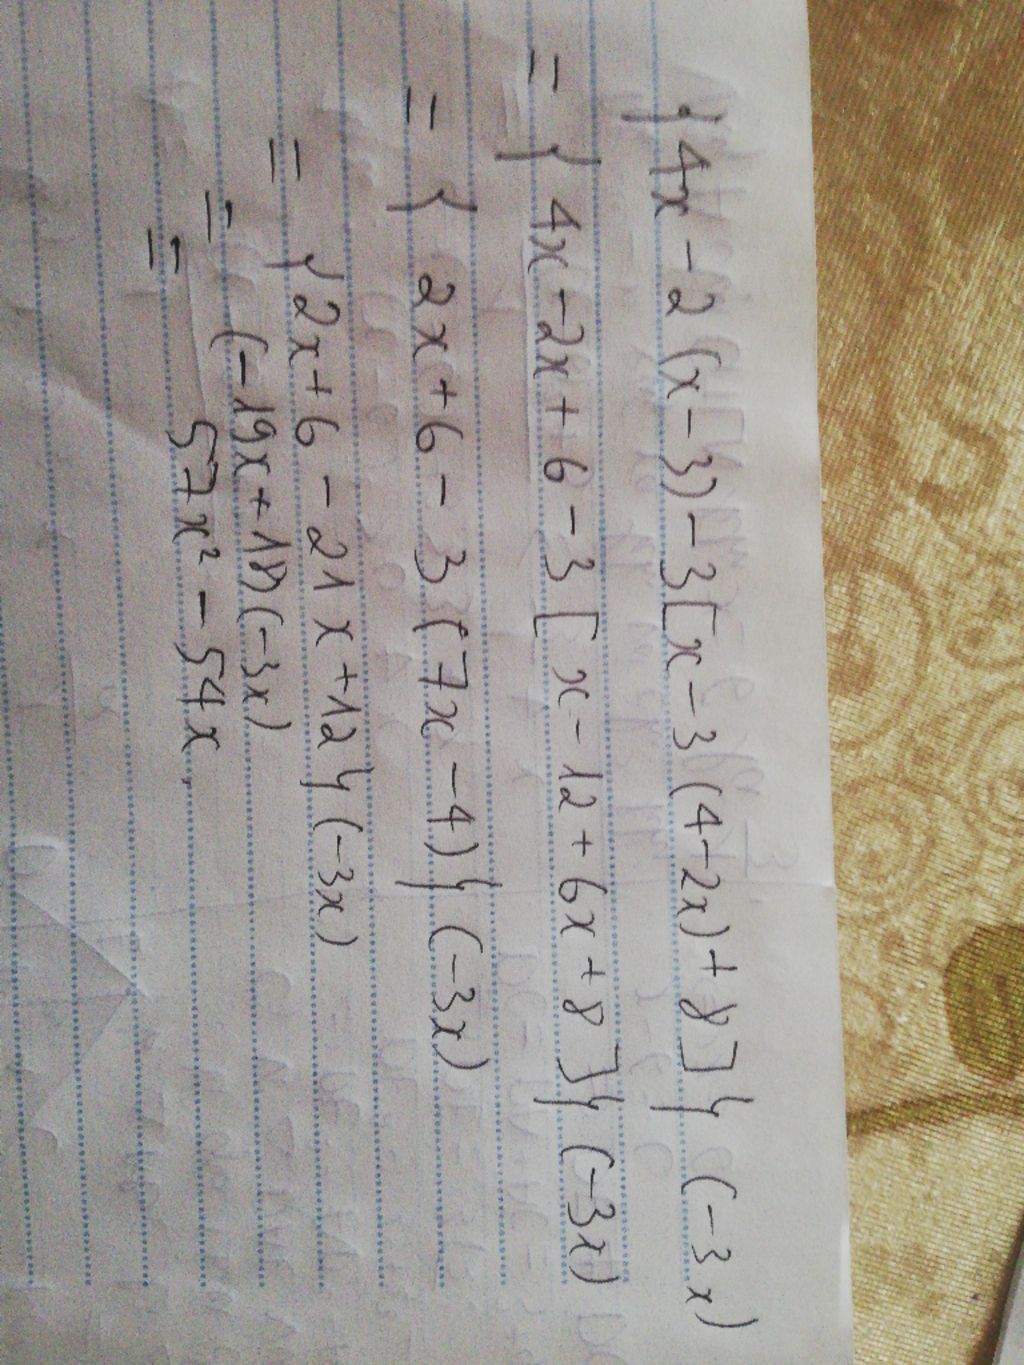 {4x - 2(x - 3) - 3[x - 3(4 - 2x) + 8]} (-3x)
= {4x - 2x + 6 - 3[x - 12 + 6x + 8]} (-3x)
= {2x + 6 - 3(7x - 4)} (-3x)
= {2x + 6 - 21x + 12} (-3x)
= (-19x + 18)(-3x)
= 57x² - 54x.